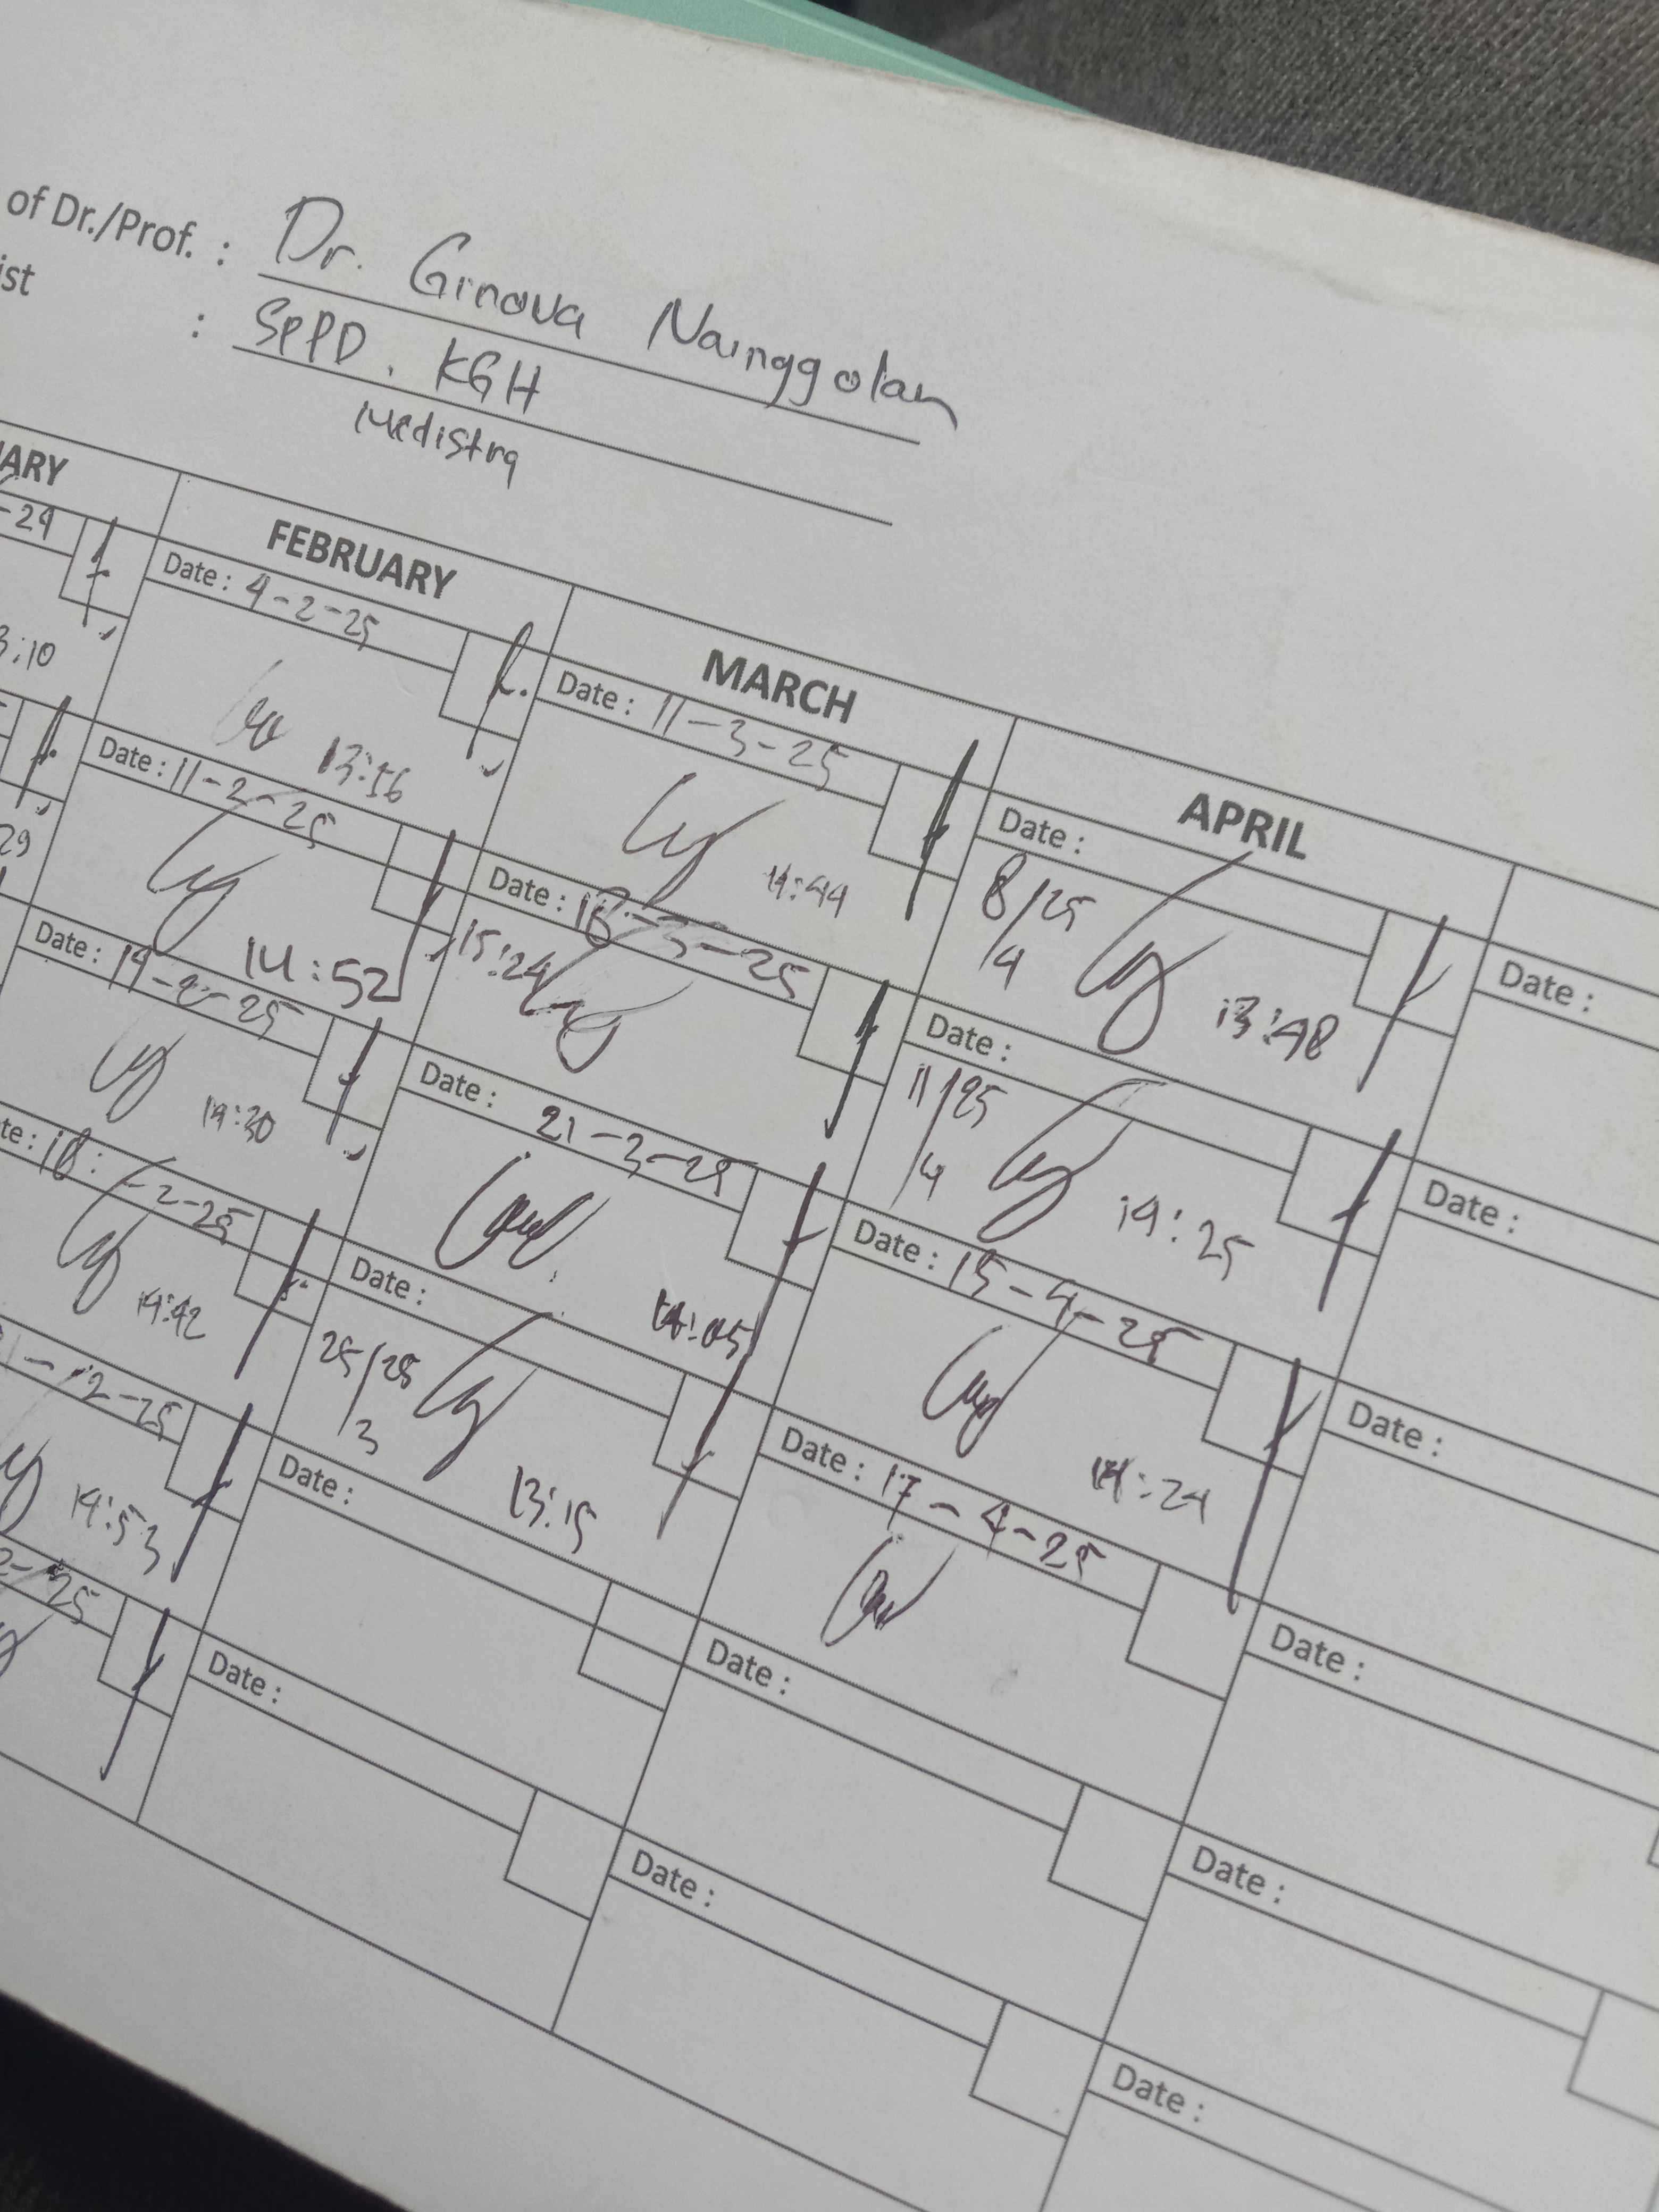 of Dr./Prof. : Dr. Ginova Nainggolan
ist : SPPD. KGH
Medistra
ARY
FEBRUARY
MARCH
APRIL
-24
3:10
29
Date : 4-2-25
13:56
Date : 11-2-25
14:52
Date : 14-2-25
14:30
te : 18-2-25
14:42
1-2-25
14:53
2-25
Date : 11-3-25
14:44
Date : 18-3-25
15:24
Date : 21-3-25
14:05
Date :
25/25
/3
13:15
Date :
Date :
Date :
8/25
/4
13:48
Date :
11/25
/4
14:25
Date : 15-4-25
14:24
Date : 17-4-25
Date :
Date :
Date :
Date :
Date :
Date :
Date :
Date :